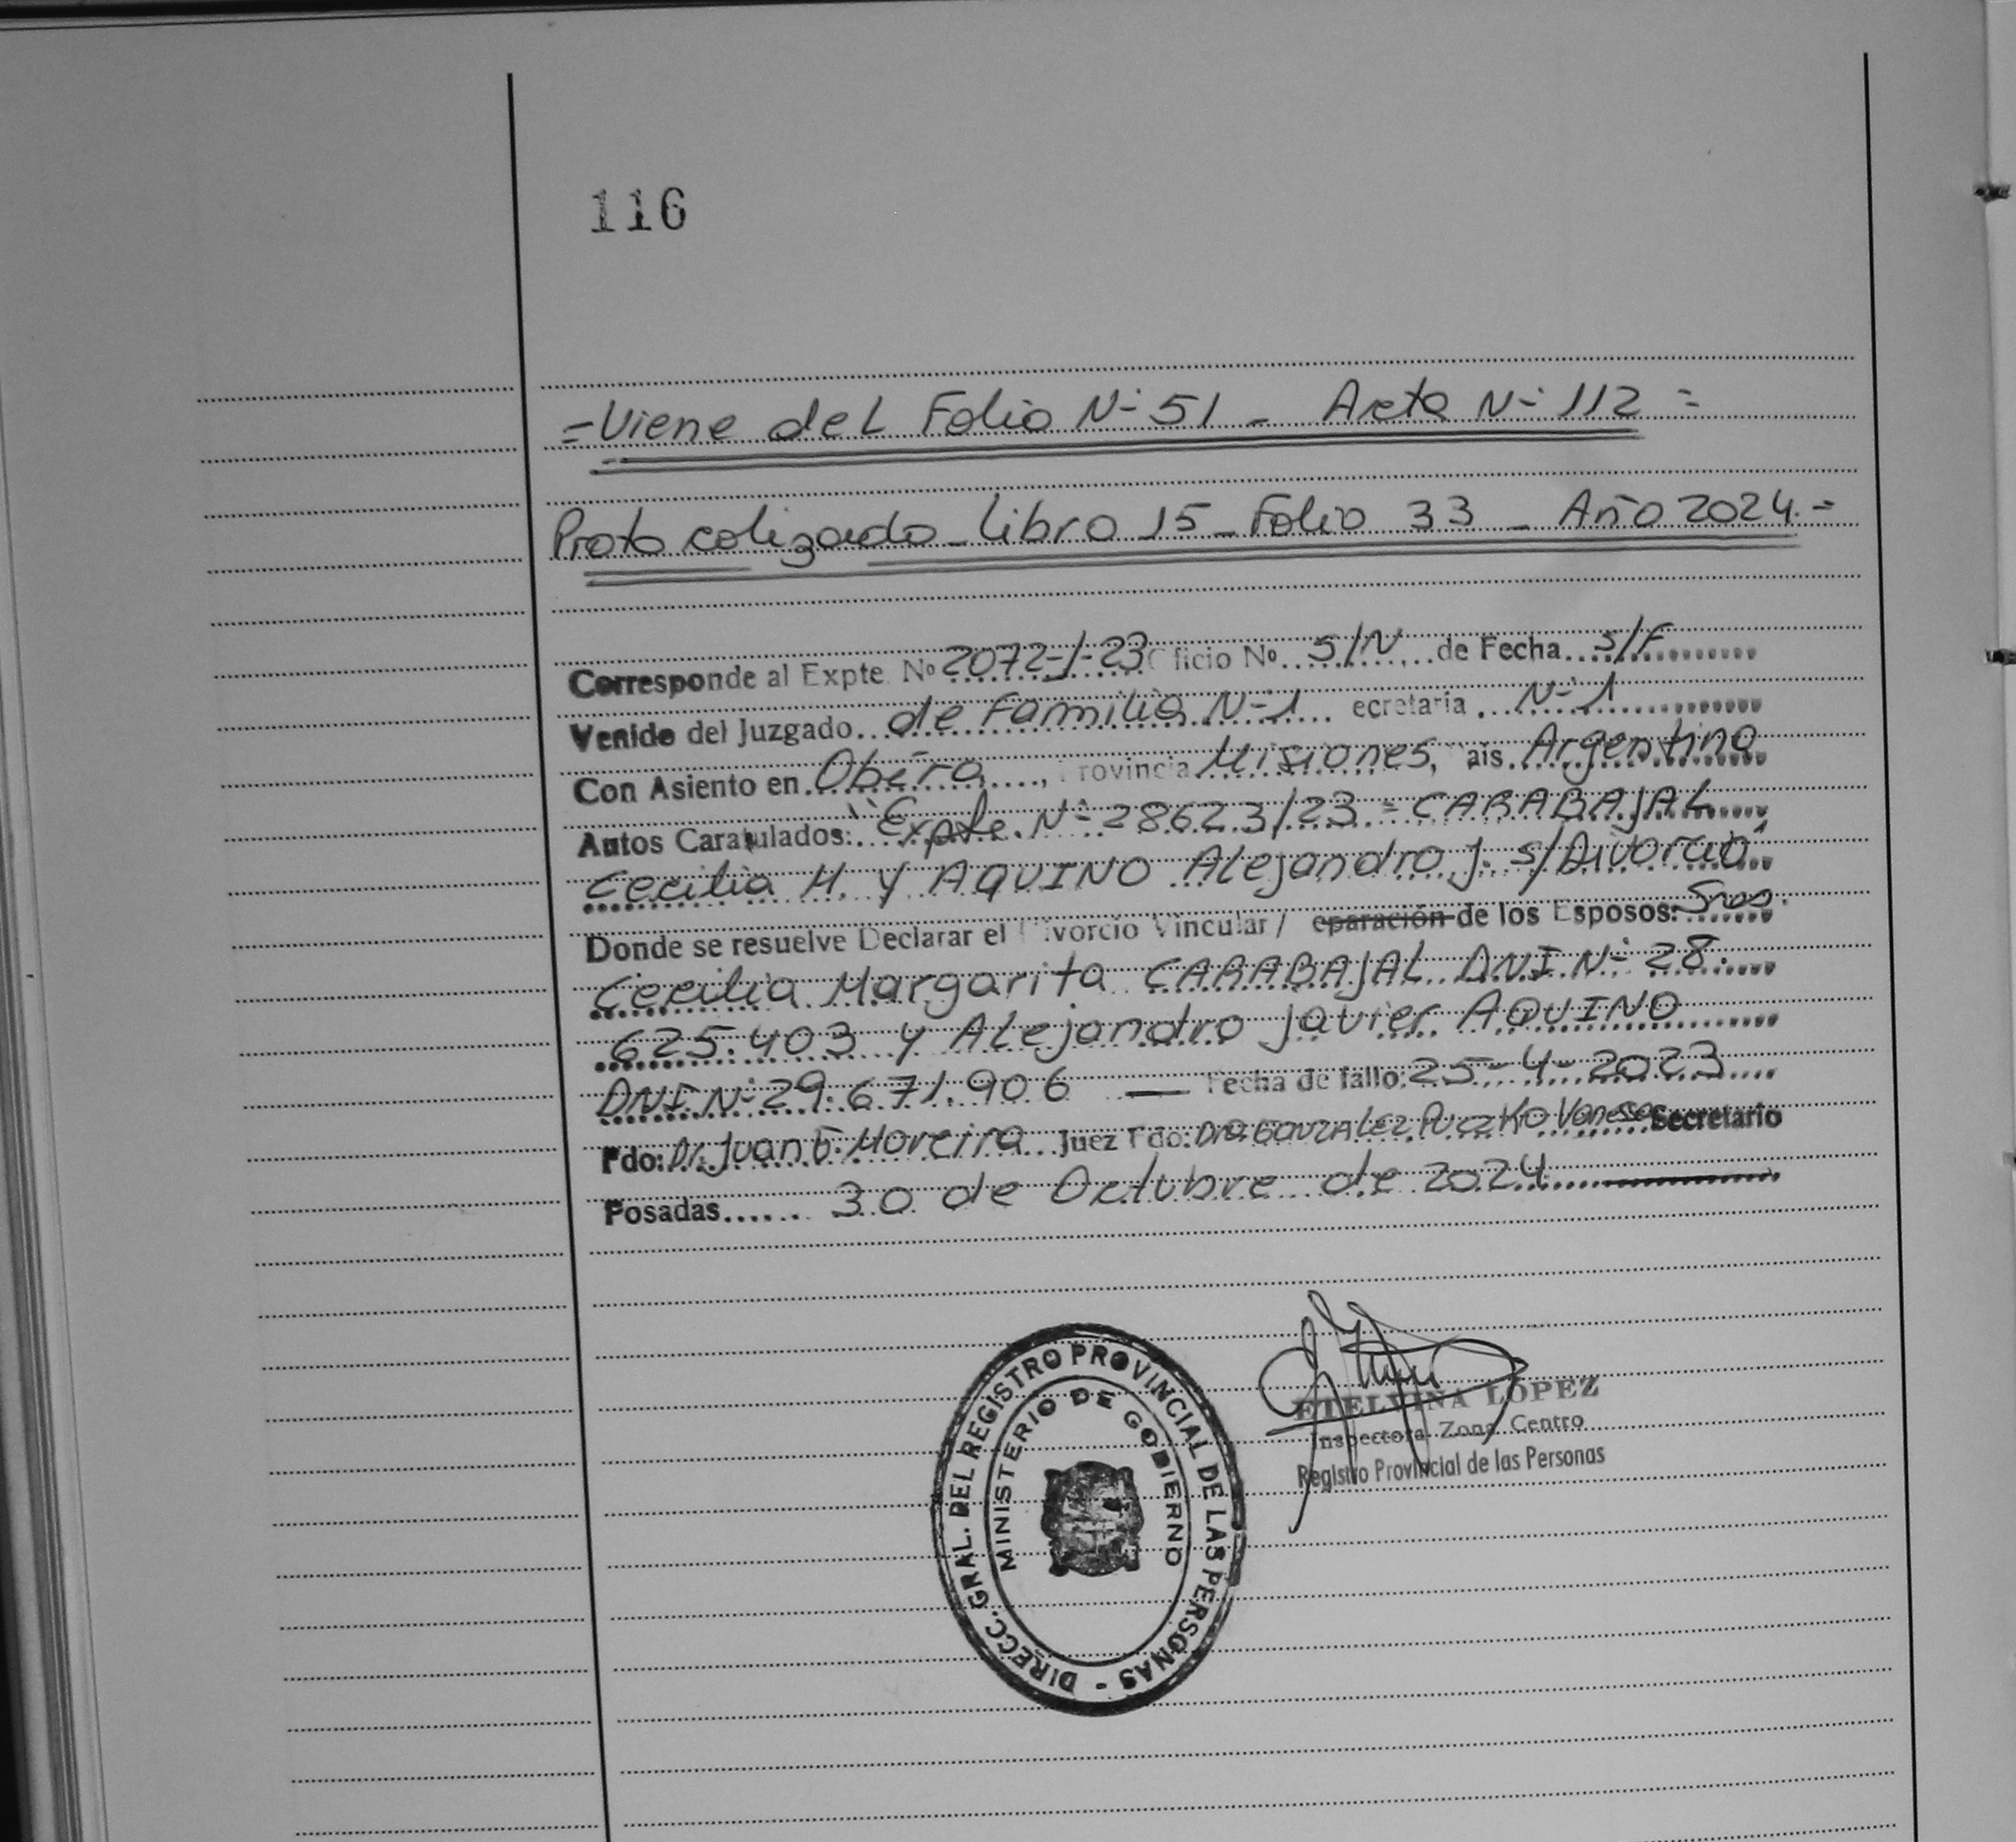 116
=Viene del Folio Nº 51 - Acta Nº 112 =
Protocolizado - Libro 15 - Folio 33 - Año 2024.=
Corresponde al Expte. Nº 2072-J-23 Oficio Nº S/N de Fecha S/F
Venido del Juzgado de Familia Nº 1 ecretaria Nº 1
Con Asiento en Oberá, Provincia Misiones, ais Argentina
Autos Caratulados: "Expte. Nº 28623/23 = CARABAJAL
Cecilia M. y AQUINO Alejandro J. s/Divorcio"
Donde se resuelve Declarar el Divorcio Vincular / eparación de los Esposos: Sres.
Cecilia Margarita CARABAJAL DNI Nº 28.
625.403 y Alejandro Javier AQUINO
DNI Nº 29.671.906 — Fecha de fallo: 25-4-2023
Fdo: Dr. Juan F. Moreira Juez Fdo: Dra GONZALEZ Vanesa Secretario
Posadas 30 de Octubre de 2024
DIRECC. GRAL. DEL REGISTRO PROVINCIAL DE LAS PERSONAS -
MINISTERIO DE GOBIERNO
ETELVINA LOPEZ
Inspectora Zona Centro
Registro Provincial de las Personas